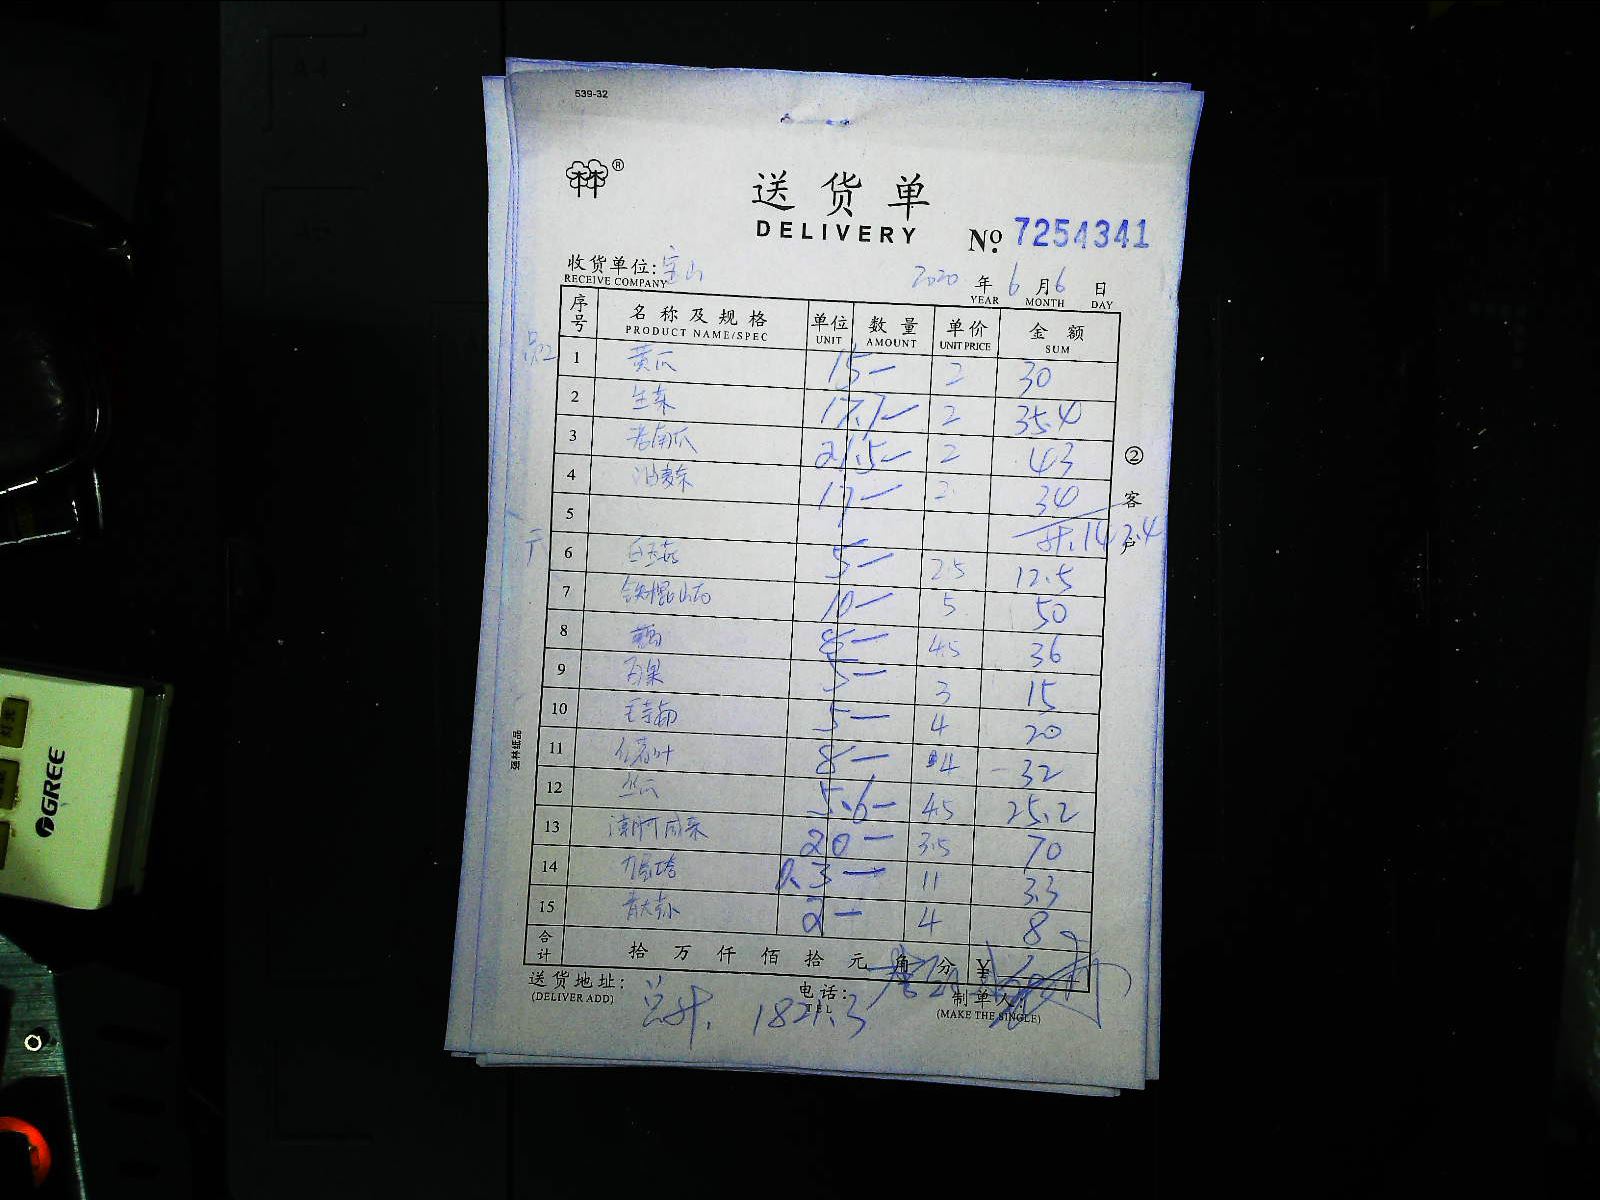 539-32
®
送货单
DELIVERY
№ 7254341
收货单位: 宝山 2020 年 6 月 6 日
RECEIVE COMPANY YEAR MONTH DAY
序号 名称及规格 单位 数量 单价 金额
PRODUCT NAME/SPEC UNIT AMOUNT UNIT PRICE SUM
1 黄瓜 15- 2 30
2 生菜 17.7- 2 35.4
3 老南瓜 21.5- 2 43
4 油麦菜 17- 2 34
5 计.142.4
6 白玉菇 5- 2.5 12.5
7 铁棍山药 10- 5 50
8 8- 4.5 36
9 5- 3 15
10 5- 4 20
11 8- 4 -32
12 丝瓜 5.6- 4.5 25.2
13 20- 3.5 70
14 0.3- 11 3.3
15 2- 4 8
合计 拾 万 仟 佰 拾 元 角 分 ¥
送货地址: 电话: 制单人:
(DELIVER ADD) TEL (MAKE THE SINGLE)
总计. 1821.3
②客户
强林纸品
GREE